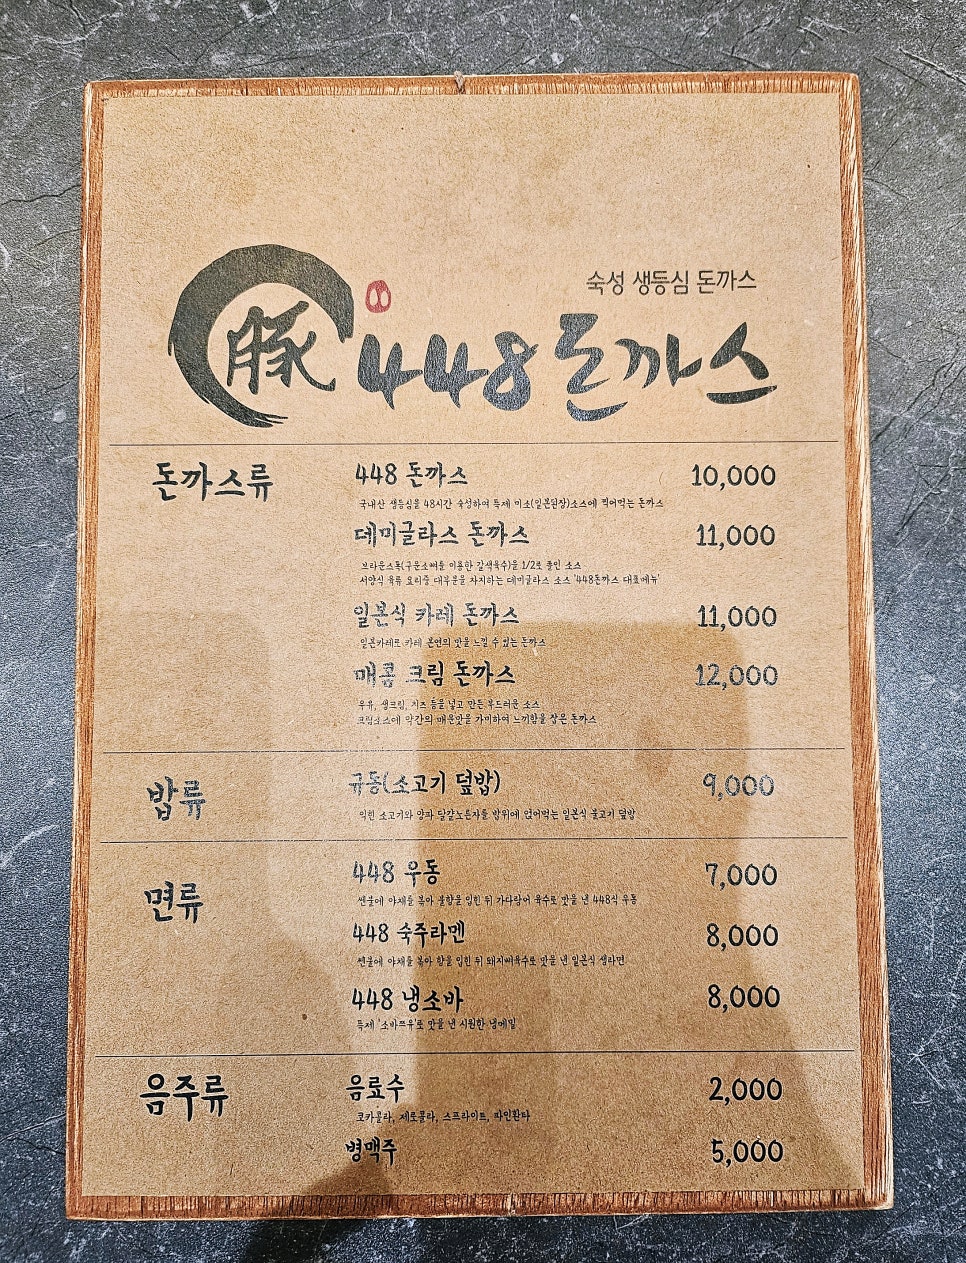 숙성 생등심 돈까스
豚 448 돈까스
돈까스류
448 돈까스 10,000
국내산 생등심을 48시간 숙성하여 특제 미소(일본된장)소스에 찍어먹는 돈까스
데미글라스 돈까스 11,000
브라운스톡(구운소뼈를 이용한 갈색육수)을 1/2로 졸인 소스
서양식 육류 요리중 대부분을 차지하는 데미글라스 소스 '448돈까스 대표메뉴'
일본식 카레 돈까스 11,000
일본카레로 카레 본연의 맛을 느낄 수 있는 돈까스
매콤 크림 돈까스 12,000
우유, 생크림, 치즈 등을 넣고 만든 부드러운 소스
크림소스에 약간의 매운맛을 가미하여 느끼함을 잡은 돈까스
밥류
규동(소고기 덮밥) 9,000
익힌 소고기와 양파 달걀노른자를 밥위에 얹어먹는 일본식 불고기 덮밥
면류
448 우동 7,000
쎈불에 야채를 볶아 불향을 입힌 뒤 가다랑어 육수로 맛을 낸 448식 우동
448 숙주라멘 8,000
쎈불에 야채를 볶아 향을 입힌 뒤 돼지뼈육수로 맛을 낸 일본식 생라면
448 냉소바 8,000
특제 '소바쯔유'로 맛을 낸 시원한 냉메밀
음주류
음료수 2,000
코카콜라, 제로콜라, 스프라이트, 파인환타
병맥주 5,000